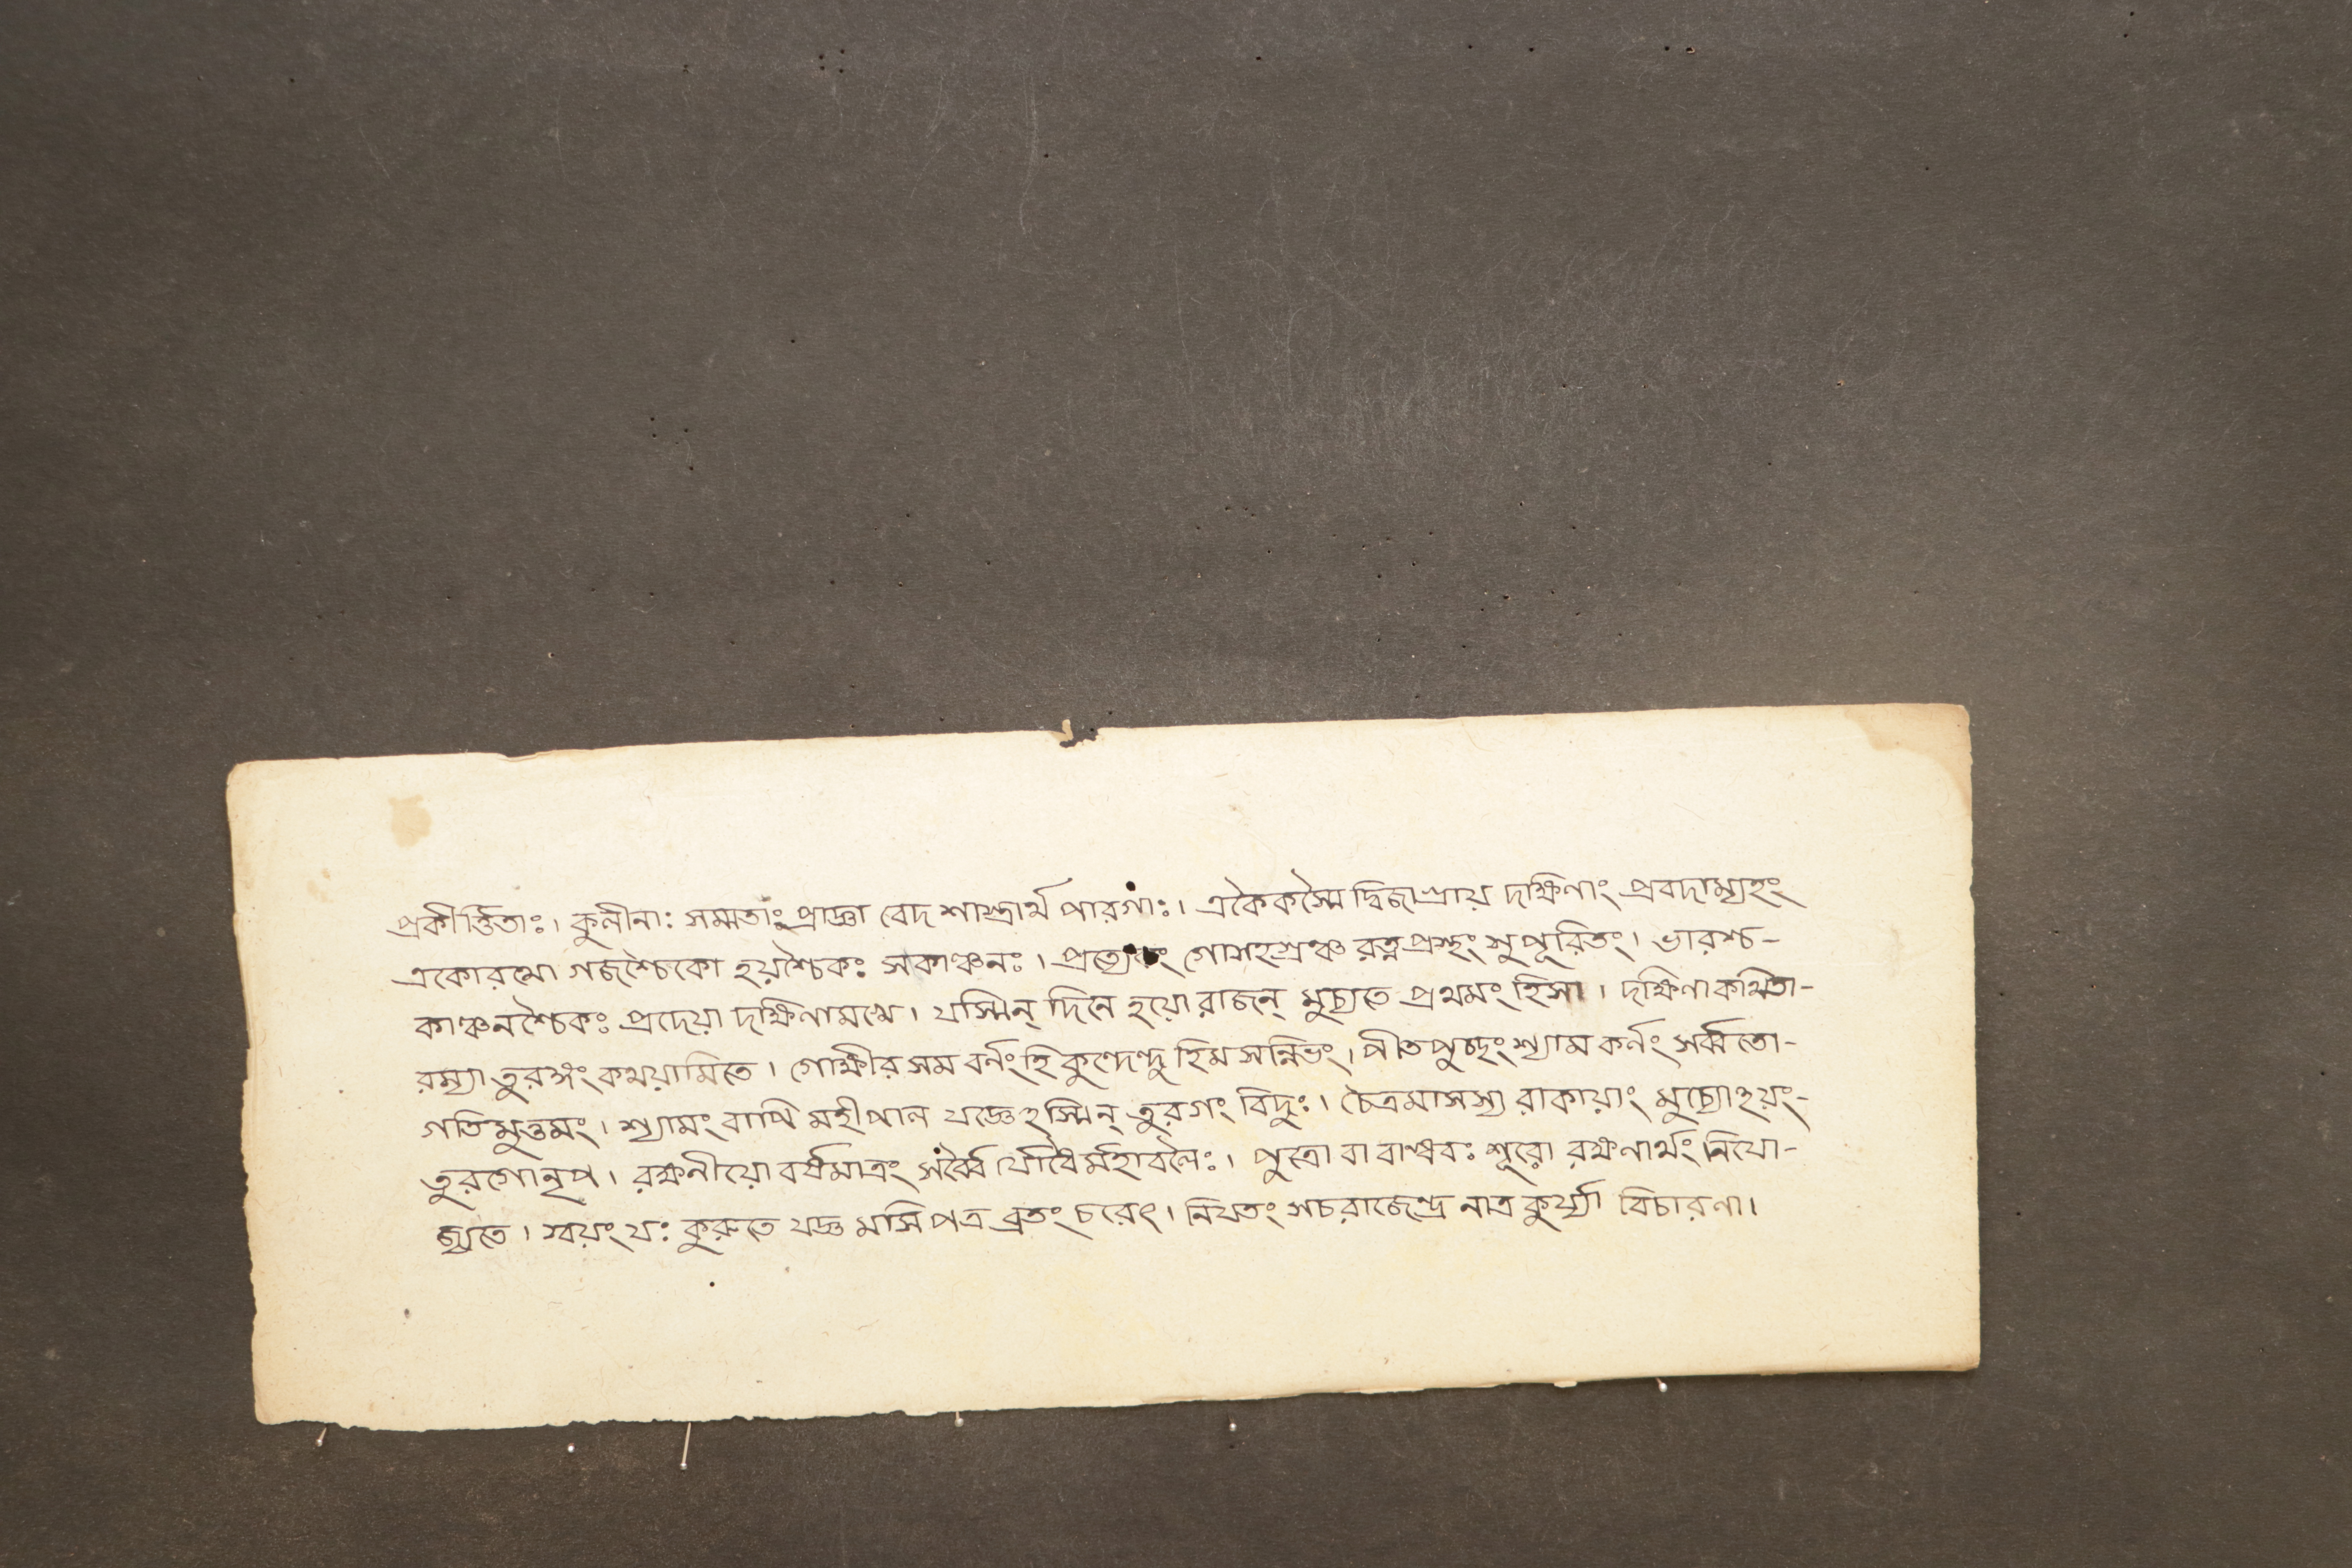 প্রকীর্ত্তিতাঃ। কুলীনাঃ সম্মতাঃ প্রাজ্ঞা বেদ শাস্ত্রার্থ পারগাঃ। একৈকস্মৈ দ্বিজাগ্র্যায় দক্ষিণাং প্রবদাম্যহং
একোরথো গজশ্চৈকো হয়শ্চৈকঃ সকাঞ্চনঃ। প্রত্যেকং গোসহস্রঞ্চ রত্নপ্রস্থং সুপূরিতং। ভারশ্চ-
কাঞ্চনশ্চৈকঃ প্রদেয়া দক্ষিণামখে। যস্মিন্ দিনে হয়ো রাজন্ মুচ্যতে প্রথমং হিসা। দক্ষিণাকথিতা-
রম্যা তুরঙ্গং কথয়ামিতে। গোক্ষীর সম বর্ণং হি কুন্দেন্দু হিম সন্নিভং। পীতপুচ্ছং শ্যাম কর্ণং সর্ব্বতো-
গতিমুত্তমং। শ্যামং বাপি মহীপাল যজ্ঞেহস্মিন্ তুরগং বিদুঃ। চৈত্রমাসস্য রাকায়াং মুচ্যোহয়ং-
তুরগোনৃপ। রক্ষনীয়ো বর্ষমাত্রং সর্ব্বৈ র্যোধৈর্মহাবলৈঃ। পুত্রো বা বান্ধবঃ শূরো রক্ষণার্থং নিযো-
জ্যতে। স্বয়ং যঃ কুরুতে যজ্ঞ মসিপত্র ব্রতং চরেৎ। নিযতং সচরাজেন্দ্র নাত্র কুর্য্যা বিচারণা।